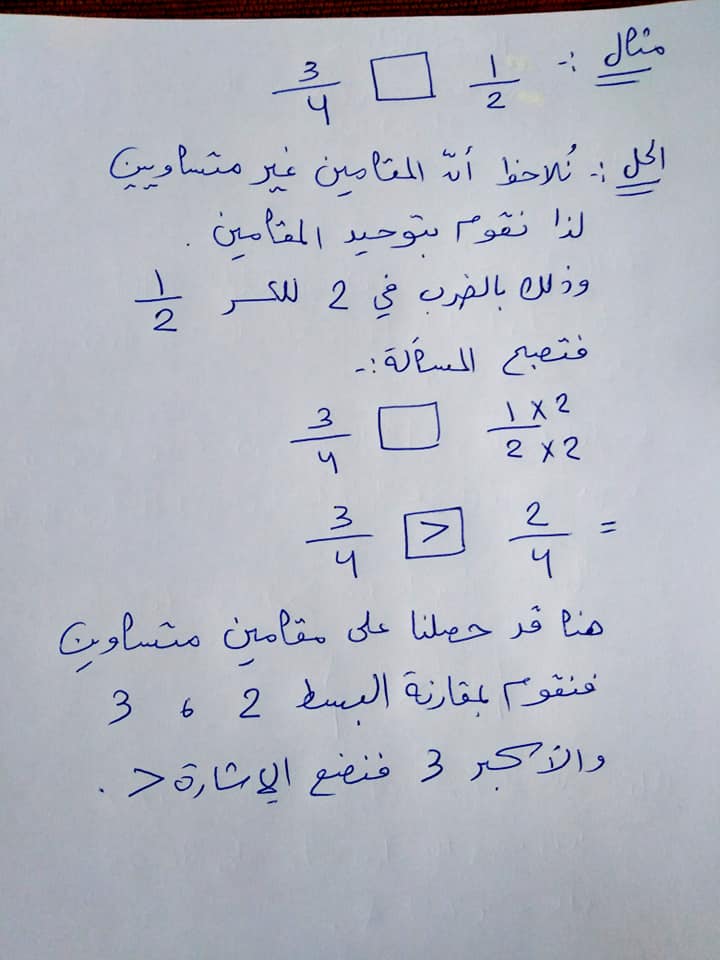 مثال :- 1/2 □ 3/4
الحل :- نُلاحظ أنّ المقامين غير متساويين
لذا نقوم بتوحيد المقامين .
وذلك بالضرب في 2 للكسر 1/2
فتصبح المسألة :-
1×2/2×2 □ 3/4
= 2/4 > 3/4
هنا قد حصلنا على مقامين متساوين
فنقوم بمقارنة البسط 2 ، 3
والأكبر 3 فنضع الإشارة > .